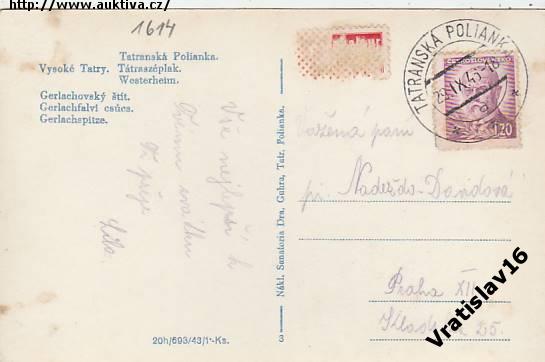 http://www.auktiva.cz/
1614
Tatranská Polianka.
Vysoké Tatry. Tátraszéplak.
Westerheim.
Gerlachovský štít.
Gerlachfalvi csúcs.
Gerlachspitze.
Vše nejlepší k
svátku
Ti přeje
20h/693/43/1·-Ks.
3 — Nákl. Sanatoria Dra. Guhra, Tatr. Polianka.
TATRANSKÁ POLIANKA
29.IX.45
a
ČESKOSLOVENSKO
1.20
Vážená paní
Naděžda Davidová
Praha XII
Vratislav16